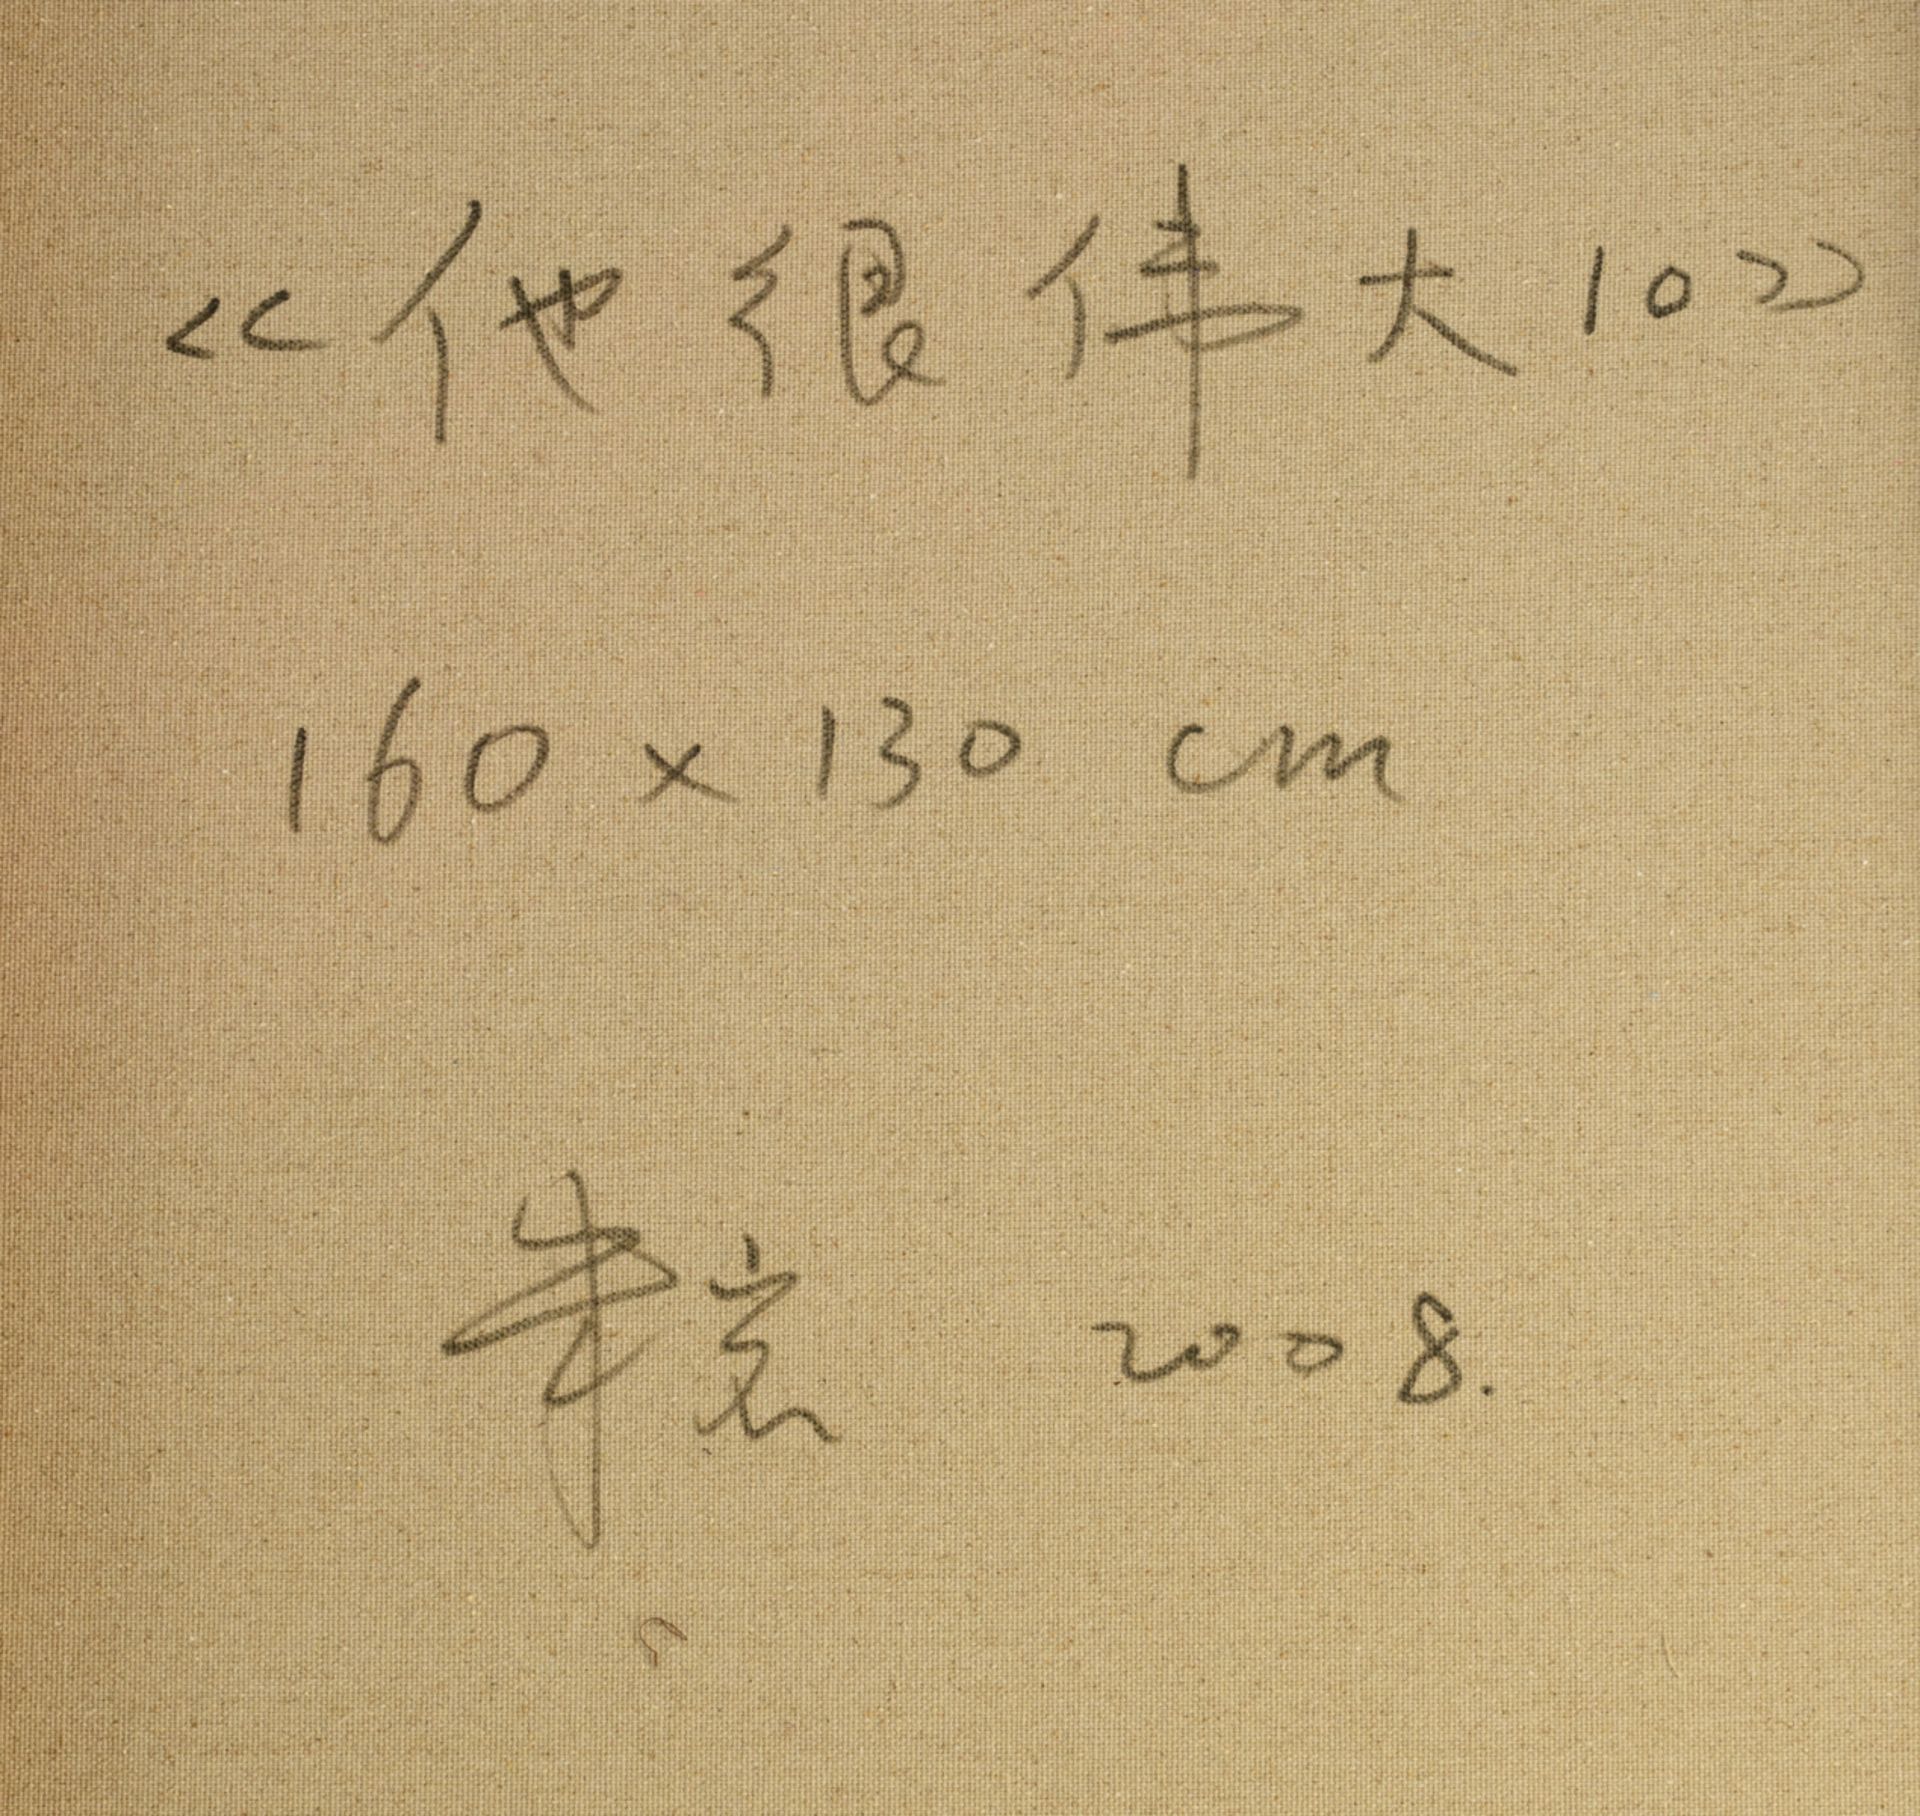 《他很伟大10》
160 x 130 cm
朱 2008.